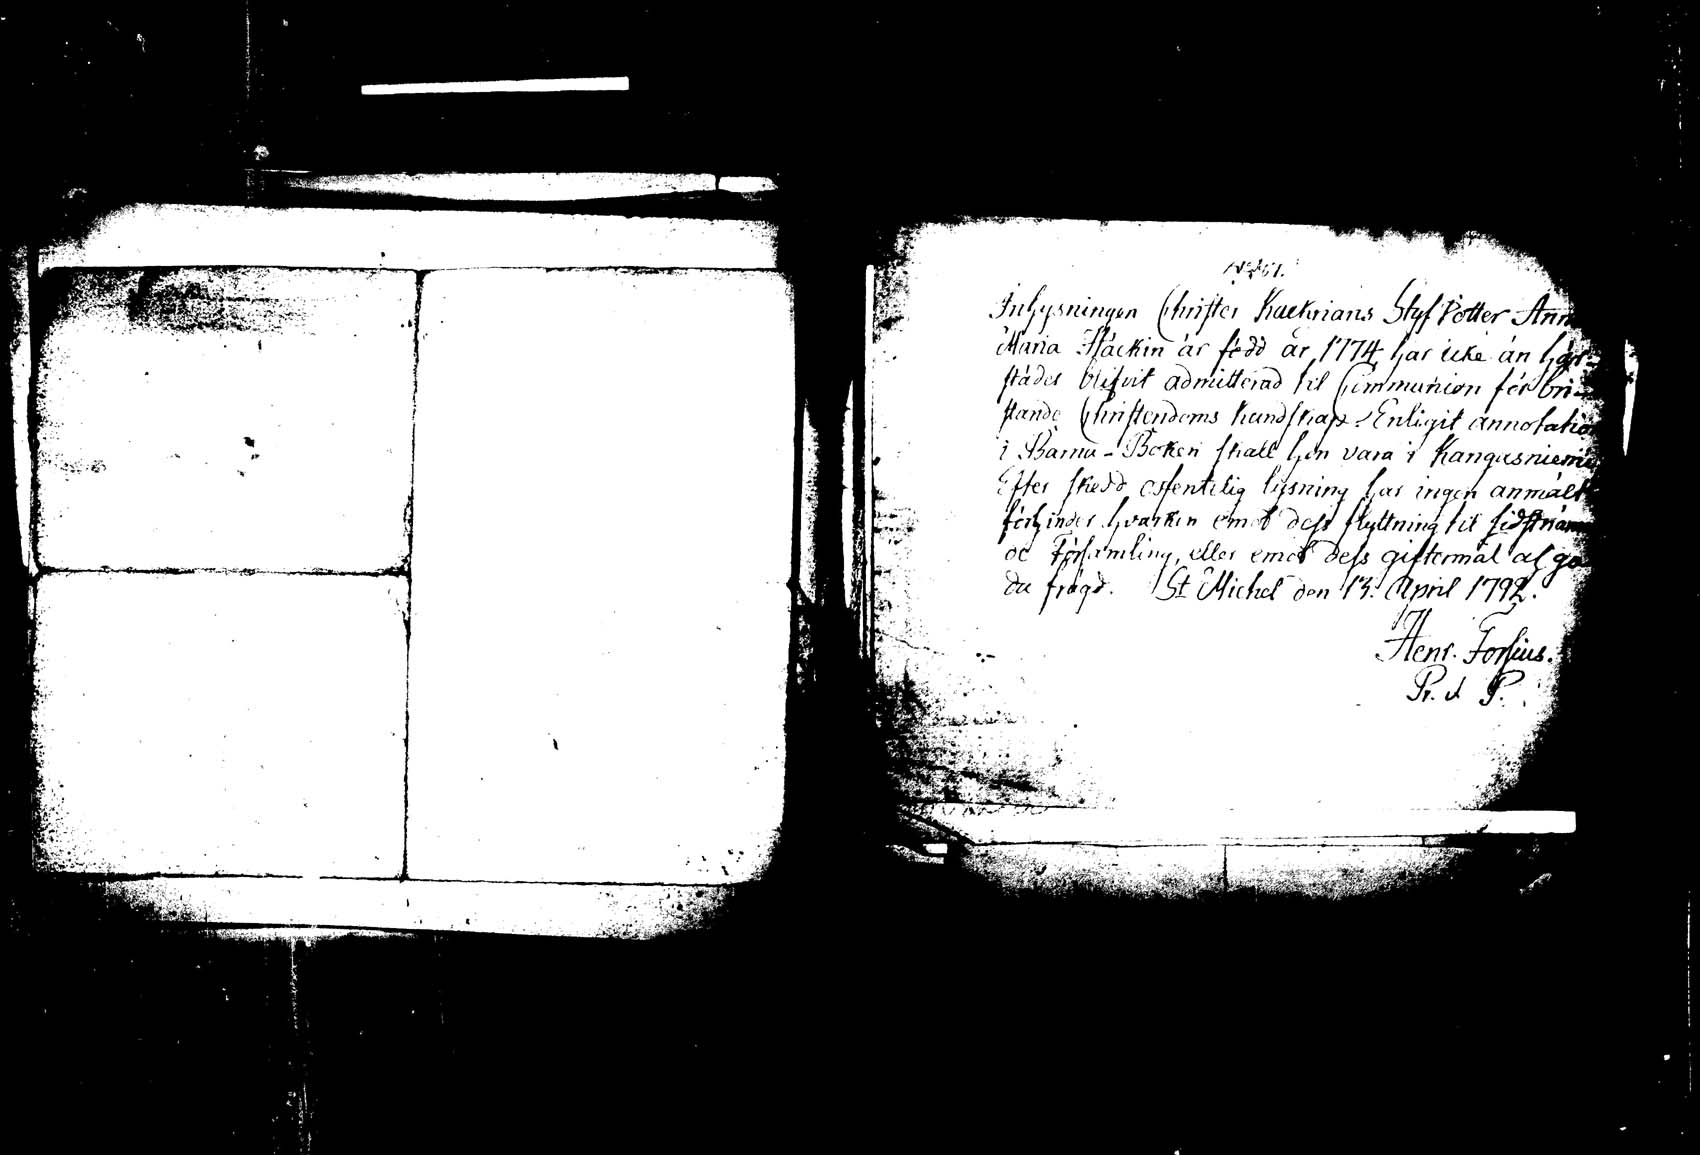 Inhysningen Christer Kuekrians Styf Dotter Ann
Maria Häckin är född år 1774, har icke än här-
städes blifvit admitterad til Communion för bri-
stande Christendoms kundskap. Enligit annotation
i Barna-Boken skall hon vara i Kangasniemi
Efter skedd offentelig lysning har ingen anmält
förhinder hvarken emot dess flyttning til sidstnäm
de Församling, eller emot dess giftermål af go
da frägd. St Michel den 13. April 1792.
Henr. Forsius.
P.